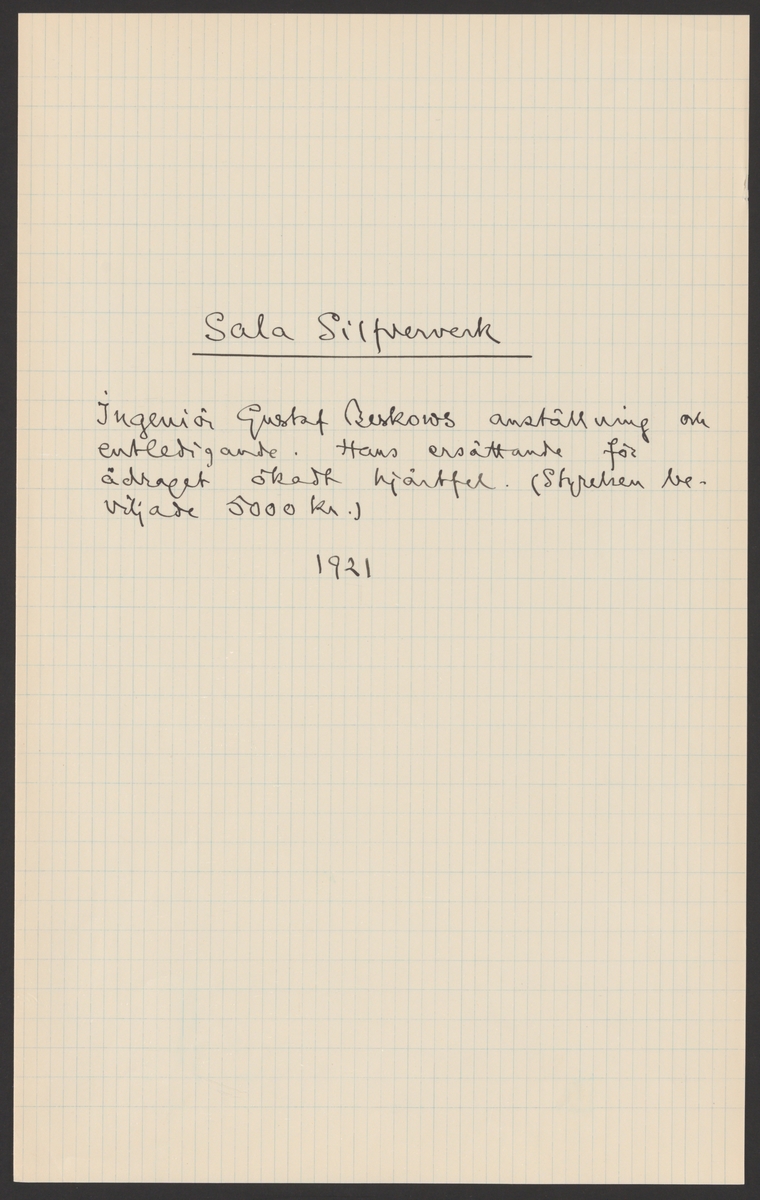 Sala Silfververk
Ingeniör Gustaf Beskows anställning och
entledigande. Hans ersättande för
ådraget ökadt hjärtfel. (Styrelsen be-
viljade 5000 kr.)
1921